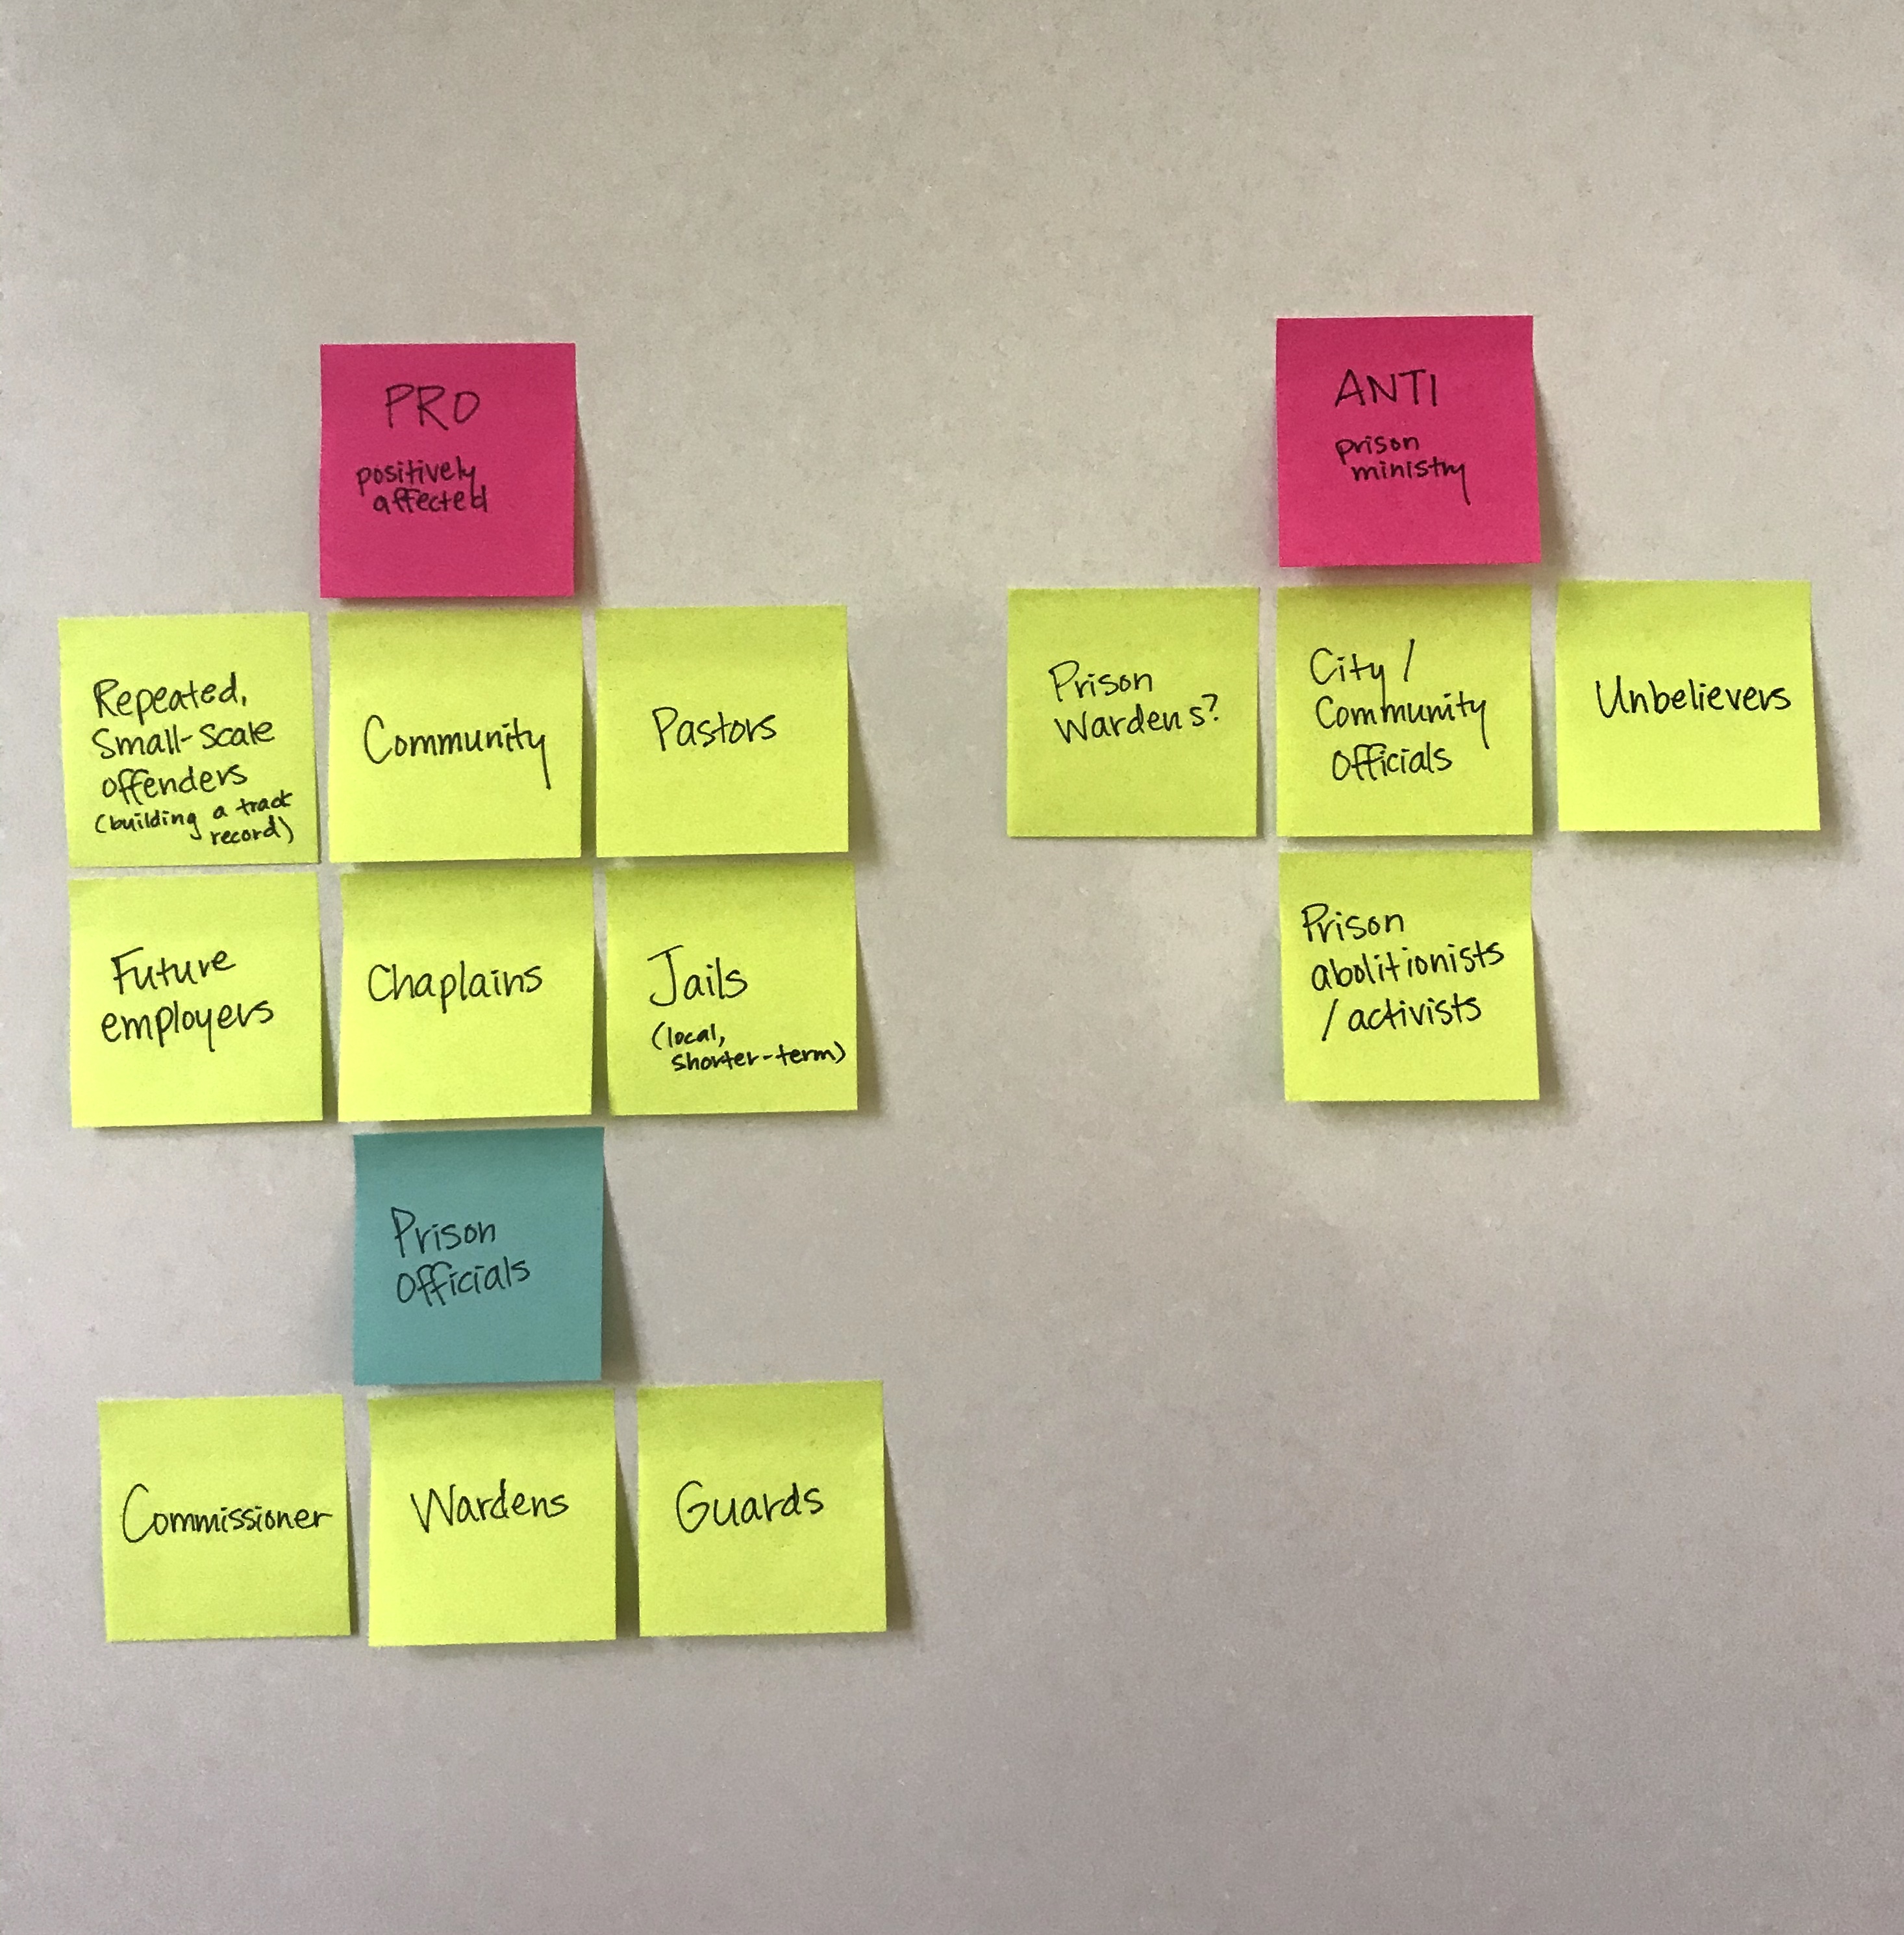 PRO
positively
affected
Repeated,
Small-Scale
offenders
(building a track
record)
Community
Pastors
Future
employers
Chaplains
Jails
(local,
shorter-term)
Prison
Officials
Commissioner
Wardens
Guards
ANTI
prison
ministry
Prison
Wardens?
City /
Community
Officials
Unbelievers
Prison
abolitionists
/activists